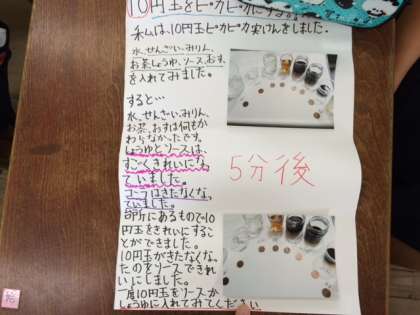 10円玉をピカピカにする
私は、10円玉ピカピカ実けんをしました。
水、せんざい、みりん、
お茶しょうゆ、ソース、おす、
を入れてみました。
すると…
水、せんざい、みりん、
お茶、おすは何もか
わらなかったです。
しょうゆとソースは、
すごくきれいになっ
ていました。
コーラはきたなくなっ
ていました。
5分後
台所にあるもので10
円玉をきれいにするこ
とができました。
10円玉がきたなくなっ
たのをソースできれ
いにしました。
一度10円玉をソースか
しょうゆに入れてみてください。